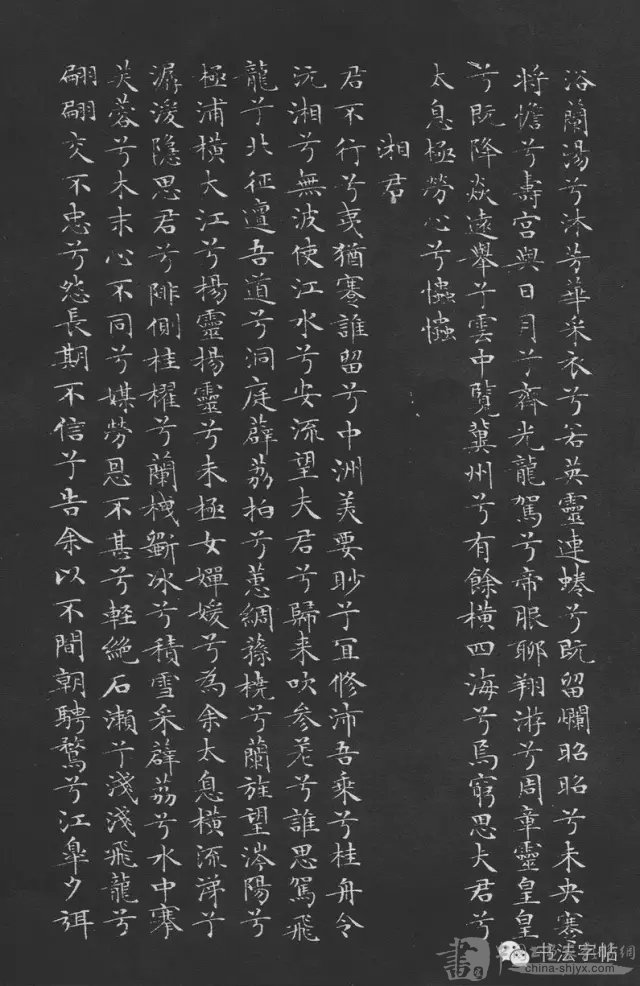 浴蘭湯兮沐芳華采衣兮若英靈連蜷兮既留爛昭昭兮未央蹇
将憺兮壽宮與日月兮齊光龍駕兮帝服聊翔游兮周章靈皇皇
兮既降猋遠舉兮雲中覽冀州兮有餘横四海兮焉窮思夫君兮
太息極勞心兮忡忡
湘君
君不行兮夷猶蹇誰留兮中洲美要眇兮宜修沛吾乘兮桂舟令
沅湘兮無波使江水兮安流望夫君兮歸来吹参差兮誰思駕飛
龍兮北征邅吾道兮洞庭薜荔拍兮蕙綢蓀橈兮蘭旌望涔陽兮
極浦横大江兮揚靈揚靈兮未極女嬋媛兮為余太息横流涕兮
潺湲隱思君兮陫側桂櫂兮蘭枻斲冰兮積雪采薜荔兮水中搴
芙蓉兮木末心不同兮媒勞恩不甚兮軽絶石瀬兮淺淺飛龍兮
翩翩交不忠兮怨長期不信兮告余以不閒朝騁騖兮江皋夕弭
书法字帖
china-shjyx.com